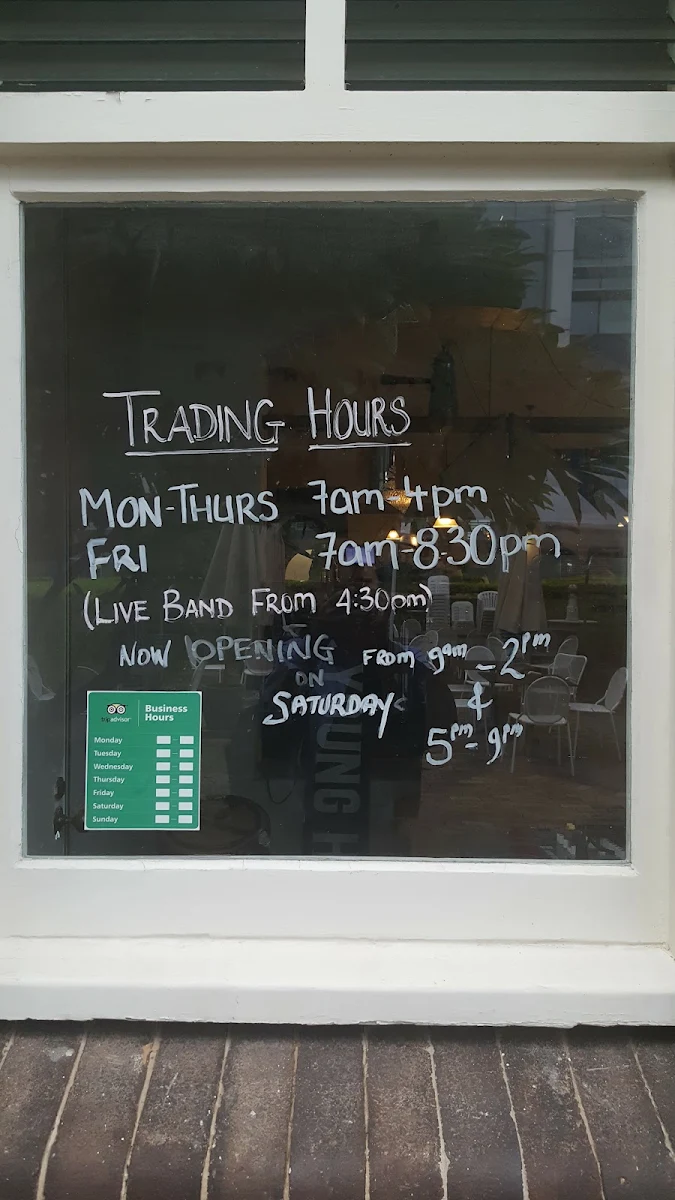 TRADING HOURS
MON-THURS 7am-4pm
FRI 7am-8.30pm
(LIVE BAND FROM 4:30pm)
NOW OPENING ON SATURDAY
FROM 9am - 2pm
&
5pm - 9pm
tripadvisor
Business Hours
Monday
Tuesday
Wednesday
Thursday
Friday
Saturday
Sunday
YOUNG H